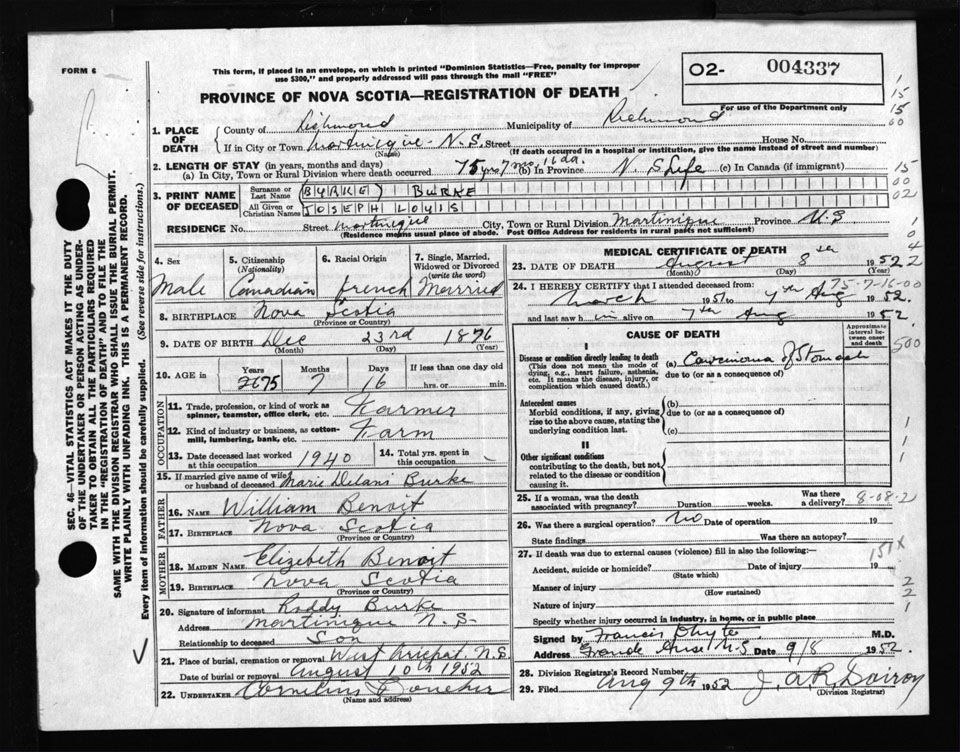 FORM 6
This form, if placed in an envelope, on which is printed "Dominion Statistics—Free, penalty for improper
use $300," and properly addressed will pass through the mail "FREE"
O2- 004337
For use of the Department only
PROVINCE OF NOVA SCOTIA—REGISTRATION OF DEATH
1. PLACE OF DEATH
County of Richmond Municipality of Richmond
If in City or Town Martinique N.S. Street House No.
(Name) (If death occurred in a hospital or institution, give the name instead of street and number)
2. LENGTH OF STAY (in years, months and days)
(a) In City, Town or Rural Division where death occurred 75 yrs 7 mo. 16 da. (b) In Province N. S. Life (c) In Canada (if immigrant)
3. PRINT NAME OF DECEASED
Surname or Last Name BURKE) BURKE
All Given or Christian Names JOSEPH LOUIS
RESIDENCE No. Street Martinique City, Town or Rural Division Martinique Province N.S
(Residence means usual place of abode. Post Office Address for residents in rural parts not sufficient)
4. Sex
Male
5. Citizenship
(Nationality)
Canadian
6. Racial Origin
french
7. Single, Married,
Widowed or Divorced
(write the word)
Married
8. BIRTHPLACE Nova Scotia
(Province or Country)
9. DATE OF BIRTH Dec 23rd 1876
(Month) (Day) (Year)
10. AGE in
Years Months Days If less than one day old
75 7 16 hrs. or min.
OCCUPATION
11. Trade, profession, or kind of work as
spinner, teamster, office clerk, etc. Farmer
12. Kind of industry or business, as cotton-
mill, lumbering, bank, etc. Farm
13. Date deceased last worked
at this occupation 1940
14. Total yrs. spent in
this occupation
15. If married give name of wife
or husband of deceased Marie Delani Burke
FATHER
16. NAME William Benoit
17. BIRTHPLACE Nova Scotia
(Province or Country)
MOTHER
18. MAIDEN NAME Elizabeth Benoit
19. BIRTHPLACE Nova Scotia
(Province or Country)
20. Signature of informant Roddy Burke
Address Martinique N.S.
Relationship to deceased Son
21. Place of burial, cremation or removal West Arichat, N.S.
Date of burial or removal August 10th 1952
22. UNDERTAKER Cornelius
(Name and address)
MEDICAL CERTIFICATE OF DEATH
23. DATE OF DEATH August 8th 1952
(Month) (Day) (Year)
24. I HEREBY CERTIFY that I attended deceased from:
75-7-16-00
March 1951 to 7th Aug 1952.
and last saw h im alive on 7th Aug 1952.
CAUSE OF DEATH
Approximate interval between onset and death
I
Disease or condition directly leading to death
(This does not mean the mode of
dying, e.g., heart failure, asthenia,
etc. It means the disease, injury, or
complication which caused death.)
(a) Carcinoma of Stomach
due to (or as a consequence of)
Antecedent causes
Morbid conditions, if any, giving
rise to the above cause, stating the
underlying condition last.
(b)
due to (or as a consequence of)
(c)
II
Other significant conditions
contributing to the death, but not
related to the disease or condition
causing it.
25. If a woman, was the death
associated with pregnancy? Duration weeks. Was there
a delivery? 8-08-2
26. Was there a surgical operation? No Date of operation 19
State findings Was there an autopsy?
27. If death was due to external causes (violence) fill in also the following:—
151X
Accident, suicide or homicide? Date of injury 19
(State which)
Manner of injury
(How sustained)
Nature of injury
Specify whether injury occurred in industry, in home, or in public place
Signed by Francis M.D.
Address Grande Anse N.S Date 9/8 1952.
28. Division Registrar's Record Number
29. Filed Aug 9th 1952 J. A. R. Doiron
(Division Registrar)
SEC. 46—VITAL STATISTICS ACT MAKES IT THE DUTY
OF THE UNDERTAKER OR PERSON ACTING AS UNDER-
TAKER TO OBTAIN ALL THE PARTICULARS REQUIRED
IN THE "REGISTRATION OF DEATH" AND TO FILE THE
SAME WITH THE DIVISION REGISTRAR WHO SHALL ISSUE THE BURIAL PERMIT.
WRITE PLAINLY WITH UNFADING INK. THIS IS A PERMANENT RECORD.
Every item of information should be carefully supplied. (See reverse side for instructions.)